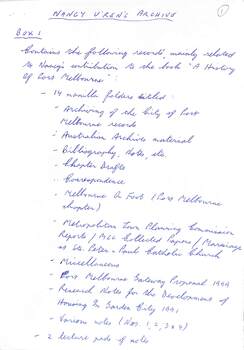 NANCY U'REN'S ARCHIVE
1
BOX 1
Contains the following records, mainly related
to Nancy's contribution to the book "A History
Of Port Melbourne":
- 14 manilla folders titled:
- Archiving of the City of Port
Melbourne records
- Australian Archives material
- Bibliography, Notes, etc.
- Chapter Drafts
- Correspondence
- Melbourne On Foot (Port Melbourne
chapter)
- Metropolitan Town Planning Commission
Reports / Collected Papers / Marriage
at Sts. Peter & Paul Catholic Church
- Miscellaneous
- Port Melbourne Gateway Proposal 1994
- Research Notes for the Development of
Housing In Garden City 1991
- Various notes (Nos. 1, 2, 3 & 4)
- 2 lecture pads of notes